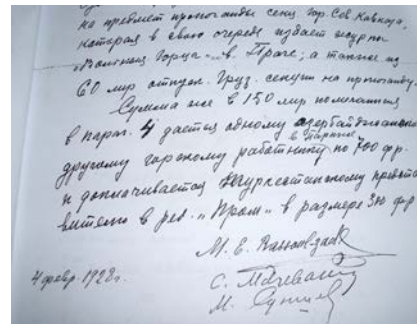 на предмет пропаганды секц. гор. Сев. Кавказа,
которая в свою очередь издает журнал
"Вольные Горцы" в Праге; а также из
60 мир отпуск. Груз. секции на пропаганду.
Сумма же в 150 мир помеченная
в параг. 4 дается одному азербайджанскому
в Париже
другому горскому работнику по 700 фр.
и доплачивается Туркестанскому предста
вителю в ред. "Пром" в размере 300 фр
М. Е.
4 февр. 1928 г.
С.
М. Суншев